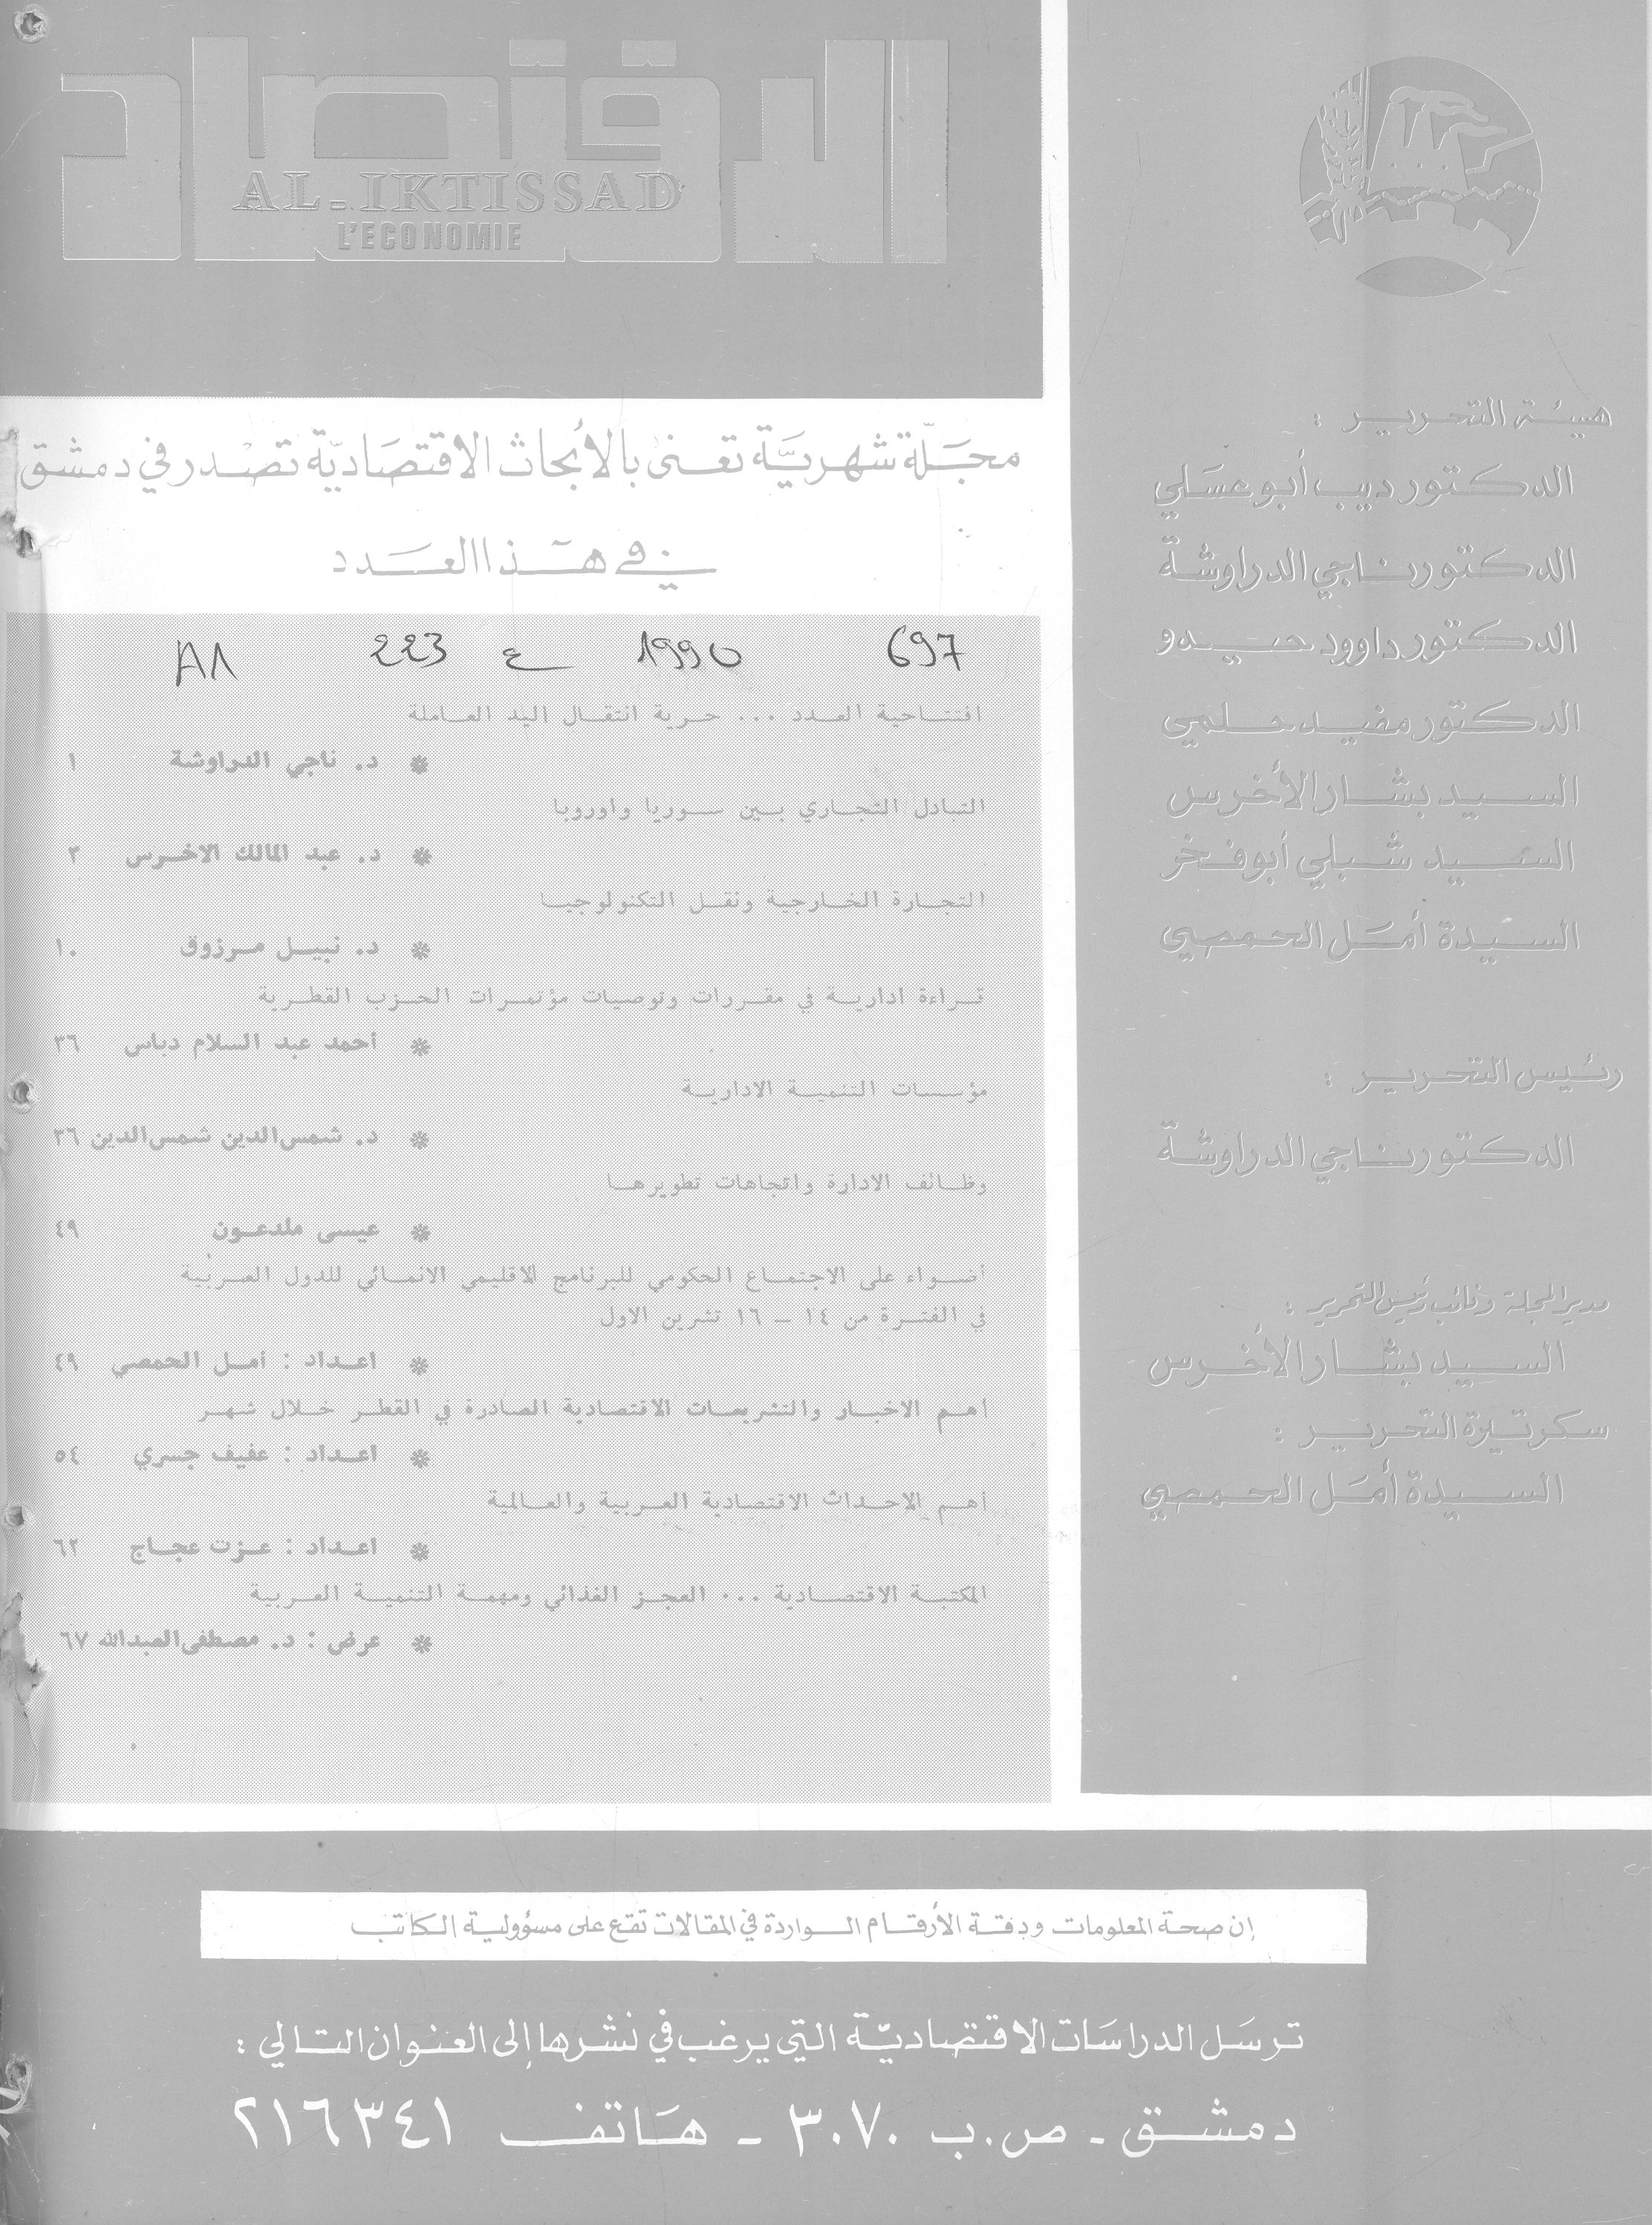 الاقتصاد
AL-IKTISSAD
L'ECONOMIE
مجلة شهرية تعنى بالأبحاث الاقتصادية تصدر في دمشق
في هذا العدد
697 1990 ع 223 AA
افتتاحية العدد ... حرية انتقال اليد العاملة
* د. ناجي الدراوشة ١
التبادل التجاري بين سوريا واوروبا
* د. عبد المالك الاخرس ٣
التجارة الخارجية ونقل التكنولوجيا
* د. نبيل مرزوق ١٠
قراءة ادارية في مقررات وتوصيات مؤتمرات الحزب القطرية
* أحمد عبد السلام دباس ٣٦
مؤسسات التنمية الادارية
* د. شمس الدين شمس الدين ٣٦
وظائف الادارة واتجاهات تطويرها
* عيسى ملدعون ٤٩
أضواء على الاجتماع الحكومي للبرنامج الاقليمي الانمائي للدول العربية
في الفترة من ١٤ - ١٦ تشرين الاول
* اعداد : امل الحمصي ٤٩
اهم الاخبار والتشريعات الاقتصادية الصادرة في القطر خلال شهر
* اعداد : عفيف جسري ٥٤
أهم الاحداث الاقتصادية العربية والعالمية
* اعداد : عزت عجاج ٦٢
المكتبة الاقتصادية ... العجز الغذائي ومهمة التنمية العربية
* عرض : د. مصطفى العبدالله ٦٧
هيئة التحرير :
الدكتور ديب أبو عسلي
الدكتور ناجي الدراوشة
الدكتور داوود حيدو
الدكتور مفيد حلمي
السيد بشار الأخرس
السيد شبلي أبو فخر
السيدة أمل الحمصي
رئيس التحرير :
الدكتور ناجي الدراوشة
مدير المجلة ونائب رئيس التحرير :
السيد بشار الأخرس
سكرتيرة التحرير :
السيدة أمل الحمصي
إن صحة المعلومات ودقة الأرقام الواردة في المقالات تقع على مسؤولية الكاتب
ترسل الدراسات الاقتصادية التي يرغب في نشرها إلى العنوان التالي :
دمشق - ص.ب ٣٠٧٠ - هاتف ٢١٦٣٤١